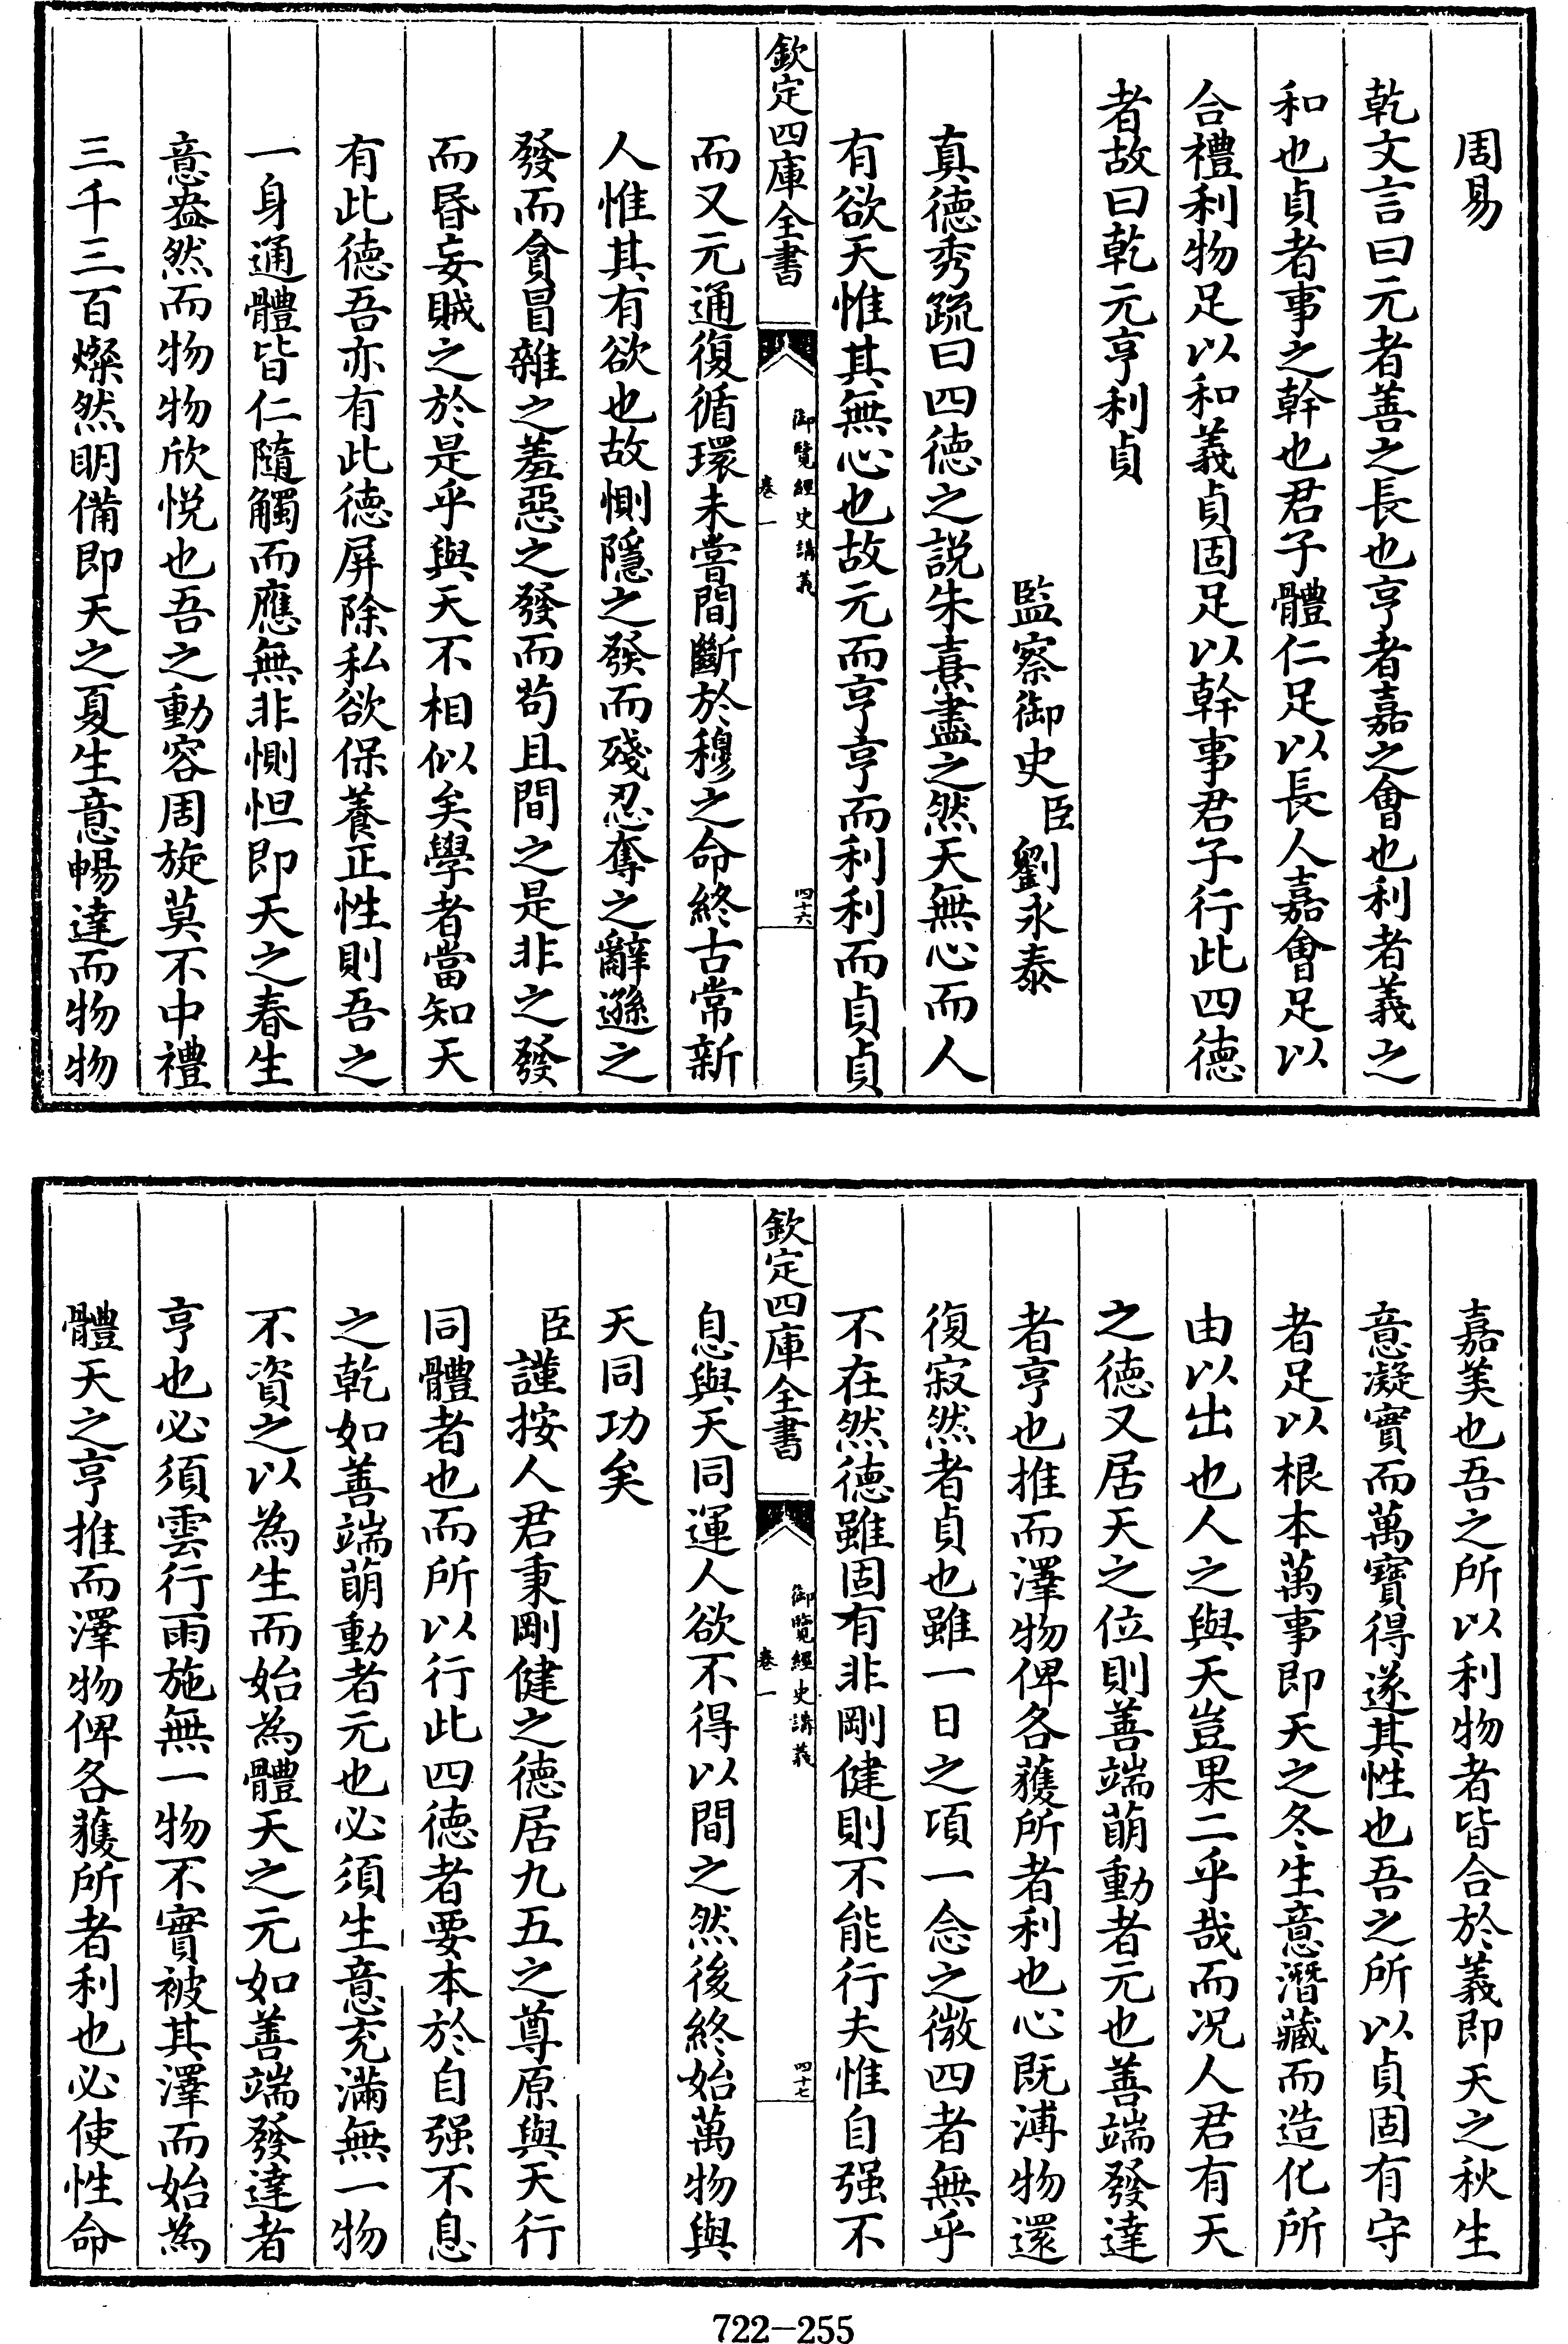 周易
乾文言曰元者善之長也亨者嘉之會也利者義之
和也貞者事之幹也君子體仁足以長人嘉會足以
合禮利物足以和義貞固足以幹事君子行此四德
者故曰乾元亨利貞
監察御史臣劉永泰
真德秀疏曰四德之説朱熹盡之然天無心而人
有欲天惟其無心也故元而亨亨而利利而貞貞
欽定四庫全書
御覽經史講義
卷一
四十六
而又元通復循環未嘗間斷於穆之命終古常新
人惟其有欲也故惻隱之發而殘忍奪之辭遜之
發而貪冒雜之羞惡之發而茍且間之是非之發
而昬妄賊之於是乎與天不相似矣學者當知天
有此德吾亦有此德屏除私欲保養正性則吾之
一身通體皆仁隨觸而應無非惻怛即天之春生
意盎然而物物欣悦也吾之動容周旋莫不中禮
三千三百燦然明備即天之夏生意暢達而物物
嘉美也吾之所以利物者皆合於義即天之秋生
意凝實而萬寶得遂其性也吾之所以貞固有守
者足以根本萬事即天之冬生意潛藏而造化所
由以出也人之與天豈果二乎哉而况人君有天
之德又居天之位則善端萌動者元也善端發達
者亨也推而澤物俾各獲所者利也心既溥物還
復寂然者貞也雖一日之項一念之微四者無乎
不在然德雖固有非剛健則不能行夫惟自强不
欽定四庫全書
御覽經史講義
卷一
四十七
息與天同運人欲不得以間之然後終始萬物與
天同功矣
臣謹按人君秉剛健之德居九五之尊原與天行
同體者也而所以行此四德者要本於自强不息
之乾如善端萌動者元也必須生意充滿無一物
不資之以為生而始為體天之元如善端發達者
亨也必須雲行雨施無一物不實被其澤而始為
體天之亨推而澤物俾各獲所者利也必使性命
722-255